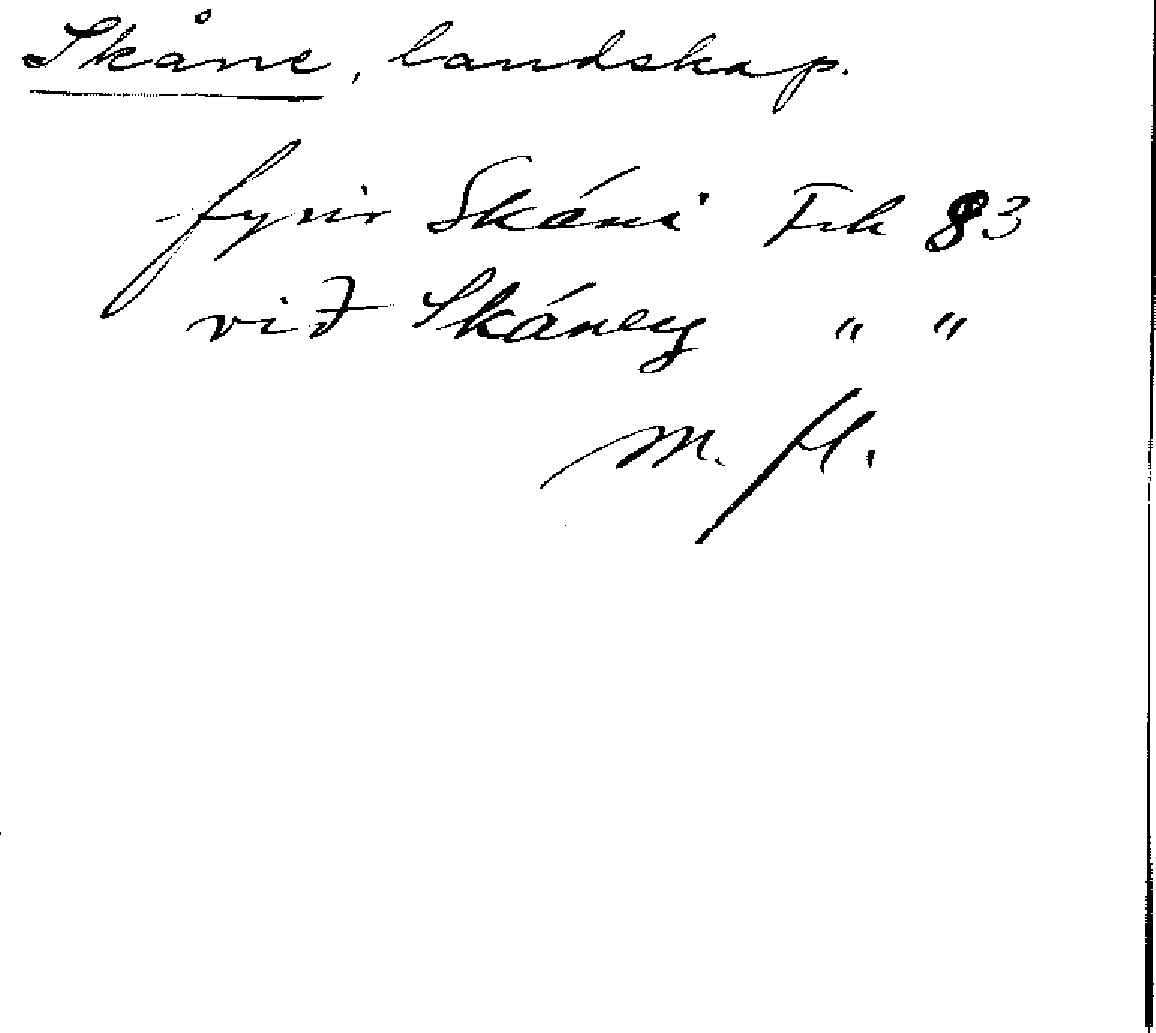 Skåne, landskap.
fyrir Skáni Frk 83
við Skáney " "
M. H.